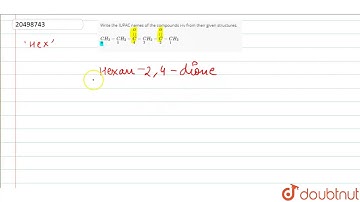 20498743
Write the IUPAC names of the compounds i-iv from their given structures.
O O
CH3 - CH2 - C - CH2 - C - CH3
6 5 4 3 2 1
'Hex'
Hexan-2,4-dione
doubtnut